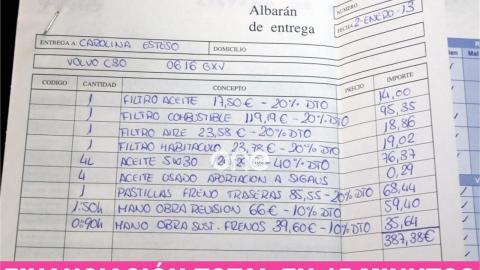 Albarán
de entrega
NUMERO
FECHA 2-ENERO-13
ENTREGA A: CAROLINA ESTOSO
DOMICILIO
VOLVO C30 0616 GXV
CODIGO CANTIDAD CONCEPTO PRECIO IMPORTE
1 FILTRO ACEITE 17,50 € - 20% DTO 14,00
1 FILTRO COMBUSTIBLE 119,19 € - 20% DTO 95,35
1 FILTRO AIRE 23,58 € - 20% DTO 18,86
1 FILTRO HABITACULO 23,78 € - 20% DTO 19,02
4L ACEITE 5W30 - 40% DTO 76,37
4 ACEITE USADO APORTACION A SIGAUS 0,29
1 PASTILLAS FRENO TRASERAS 85,55 - 20% DTO 68,44
1:50h MANO OBRA REVISION 66 € - 10% DTO 59,40
0:90h MANO OBRA SUST. FRENOS 39,60 € - 10% DTO 35,64
387,38€